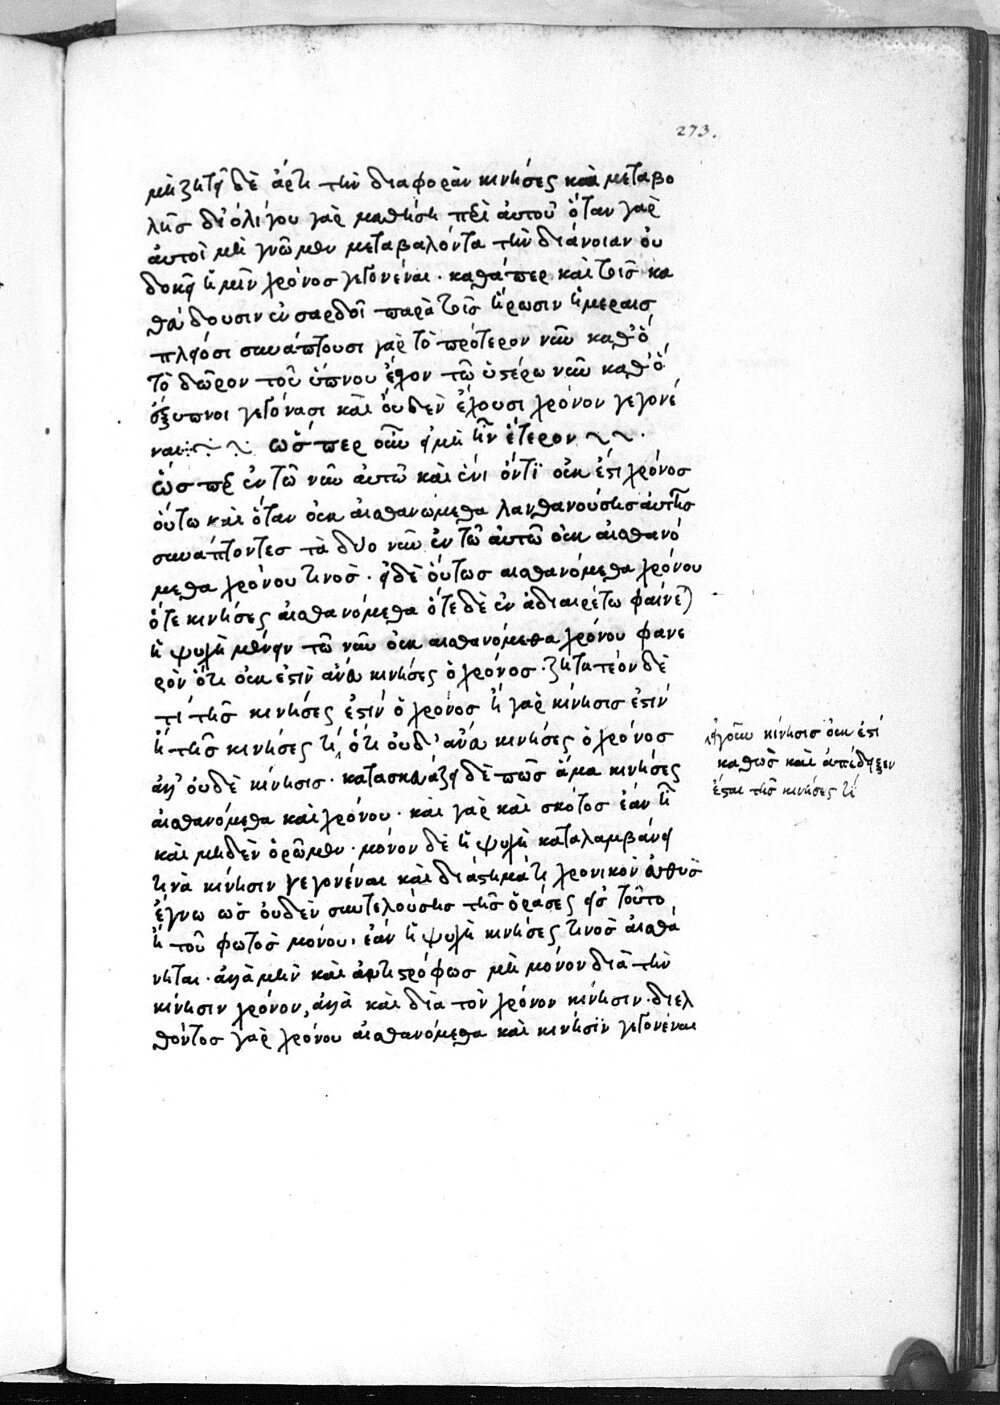 273.
μὴ ζητῆ δὲ ἄρτι τὴν διαφορὰν κινήσεως καὶ μεταβο
λῆς δι' ὀλίγου γὰρ μαθήση περὶ αὐτοῦ ὅταν γὰρ
αὐτοὶ μὴ γνῶμεν μεταβαλόντα τὴν διάνοιαν οὐ
δοκεῖ ἡμῖν χρόνος γεγονέναι · καθάπερ καὶ τοῖς κα
θεύδουσιν ἐν σαρδοῖ παρὰ τοῖς ἥρωσιν ἡμέραις
συνάπτουσι γὰρ τὸ πρότερον νῦν καθ' ὃ
τὸ δῶρον τοῦ ὕπνου ἔχον τῶ ὑστέρω νῦν καθ' ὃ
ἔξυπνοι γεγόνασι καὶ οὐδὲν ἔχουσι χρόνον γεγονέ
ναι ὥσπερ οὖν εἰ μὴ ἦν ἕτερον
ὥσπερ ἐν τῶ νῦν αὐτῶ καὶ ἑνὶ ὄντϊ οὐκ ἔστι χρόνος
οὕτω καὶ ὅταν οὐκ αἰσθανώμεθα λανθανούσης αὐτῆς
συνάπτοντες τὰ δύο νῦν ἐν τῶ αὐτῶ οὐκ αἰσθανό
μεθα χρόνου τινὸς · εἰ δὲ οὕτως αἰσθανόμεθα χρόνου
ὅτε κινήσεως αἰσθανόμεθα ὅτε δὲ ἐν ἀδιαιρέτω φαίνεται
ἡ ψυχὴ μένειν τῶ νῦν οὐκ αἰσθανόμεθα χρόνου φανε
ρὸν ὅτι οὐκ ἔστιν ἄνευ κινήσεως ὁ χρόνος · ζητητέον δὲ
τί τῆς κινήσεως ἐστὶν ὁ χρόνος ἢ γὰρ κίνησις ἐστὶν
ἢ τῆς κινήσεως τὶ, ὅτι οὐδ' ἄνευ κινήσεως ὁ χρόνος
ἀλλ' οὐδὲ κίνησις · κατασκευάζει δὲ πῶς ἅμα κινήσεως
αἰσθανόμεθα καὶ χρόνου · καὶ γὰρ καὶ σκότος ἐὰν ἦ
καὶ μηδὲν ὁρῶμεν · μόνον δὲ ἡ ψυχὴ καταλαμβάνει
τινὰ κίνησιν γεγονέναι καὶ διάστημά τι χρονικὸν εὐθὺς
ἔγνω ὡς οὐδὲν συντελούσης τῆς ὁράσεως εἰς τοῦτο
ἢ τοῦ φωτὸς μόνου · ἐὰν ἡ ψυχὴ κινήσεως τινὸς αἰσθά
νηται · ἀλλὰ μὴν καὶ ἀντιστρόφως μὴ μόνον διὰ τὴν
κίνησιν χρόνον, ἀλλὰ καὶ διὰ τὸν χρόνον κίνησιν · διελ
θόντος γὰρ χρόνου αἰσθανόμεθα καὶ κίνησϊν γεγονέναι
κίνησις οὐκ ἔστι
καθὼς καὶ ἀπέδειξεν
ἔσται τῆς κινήσεως τὶ